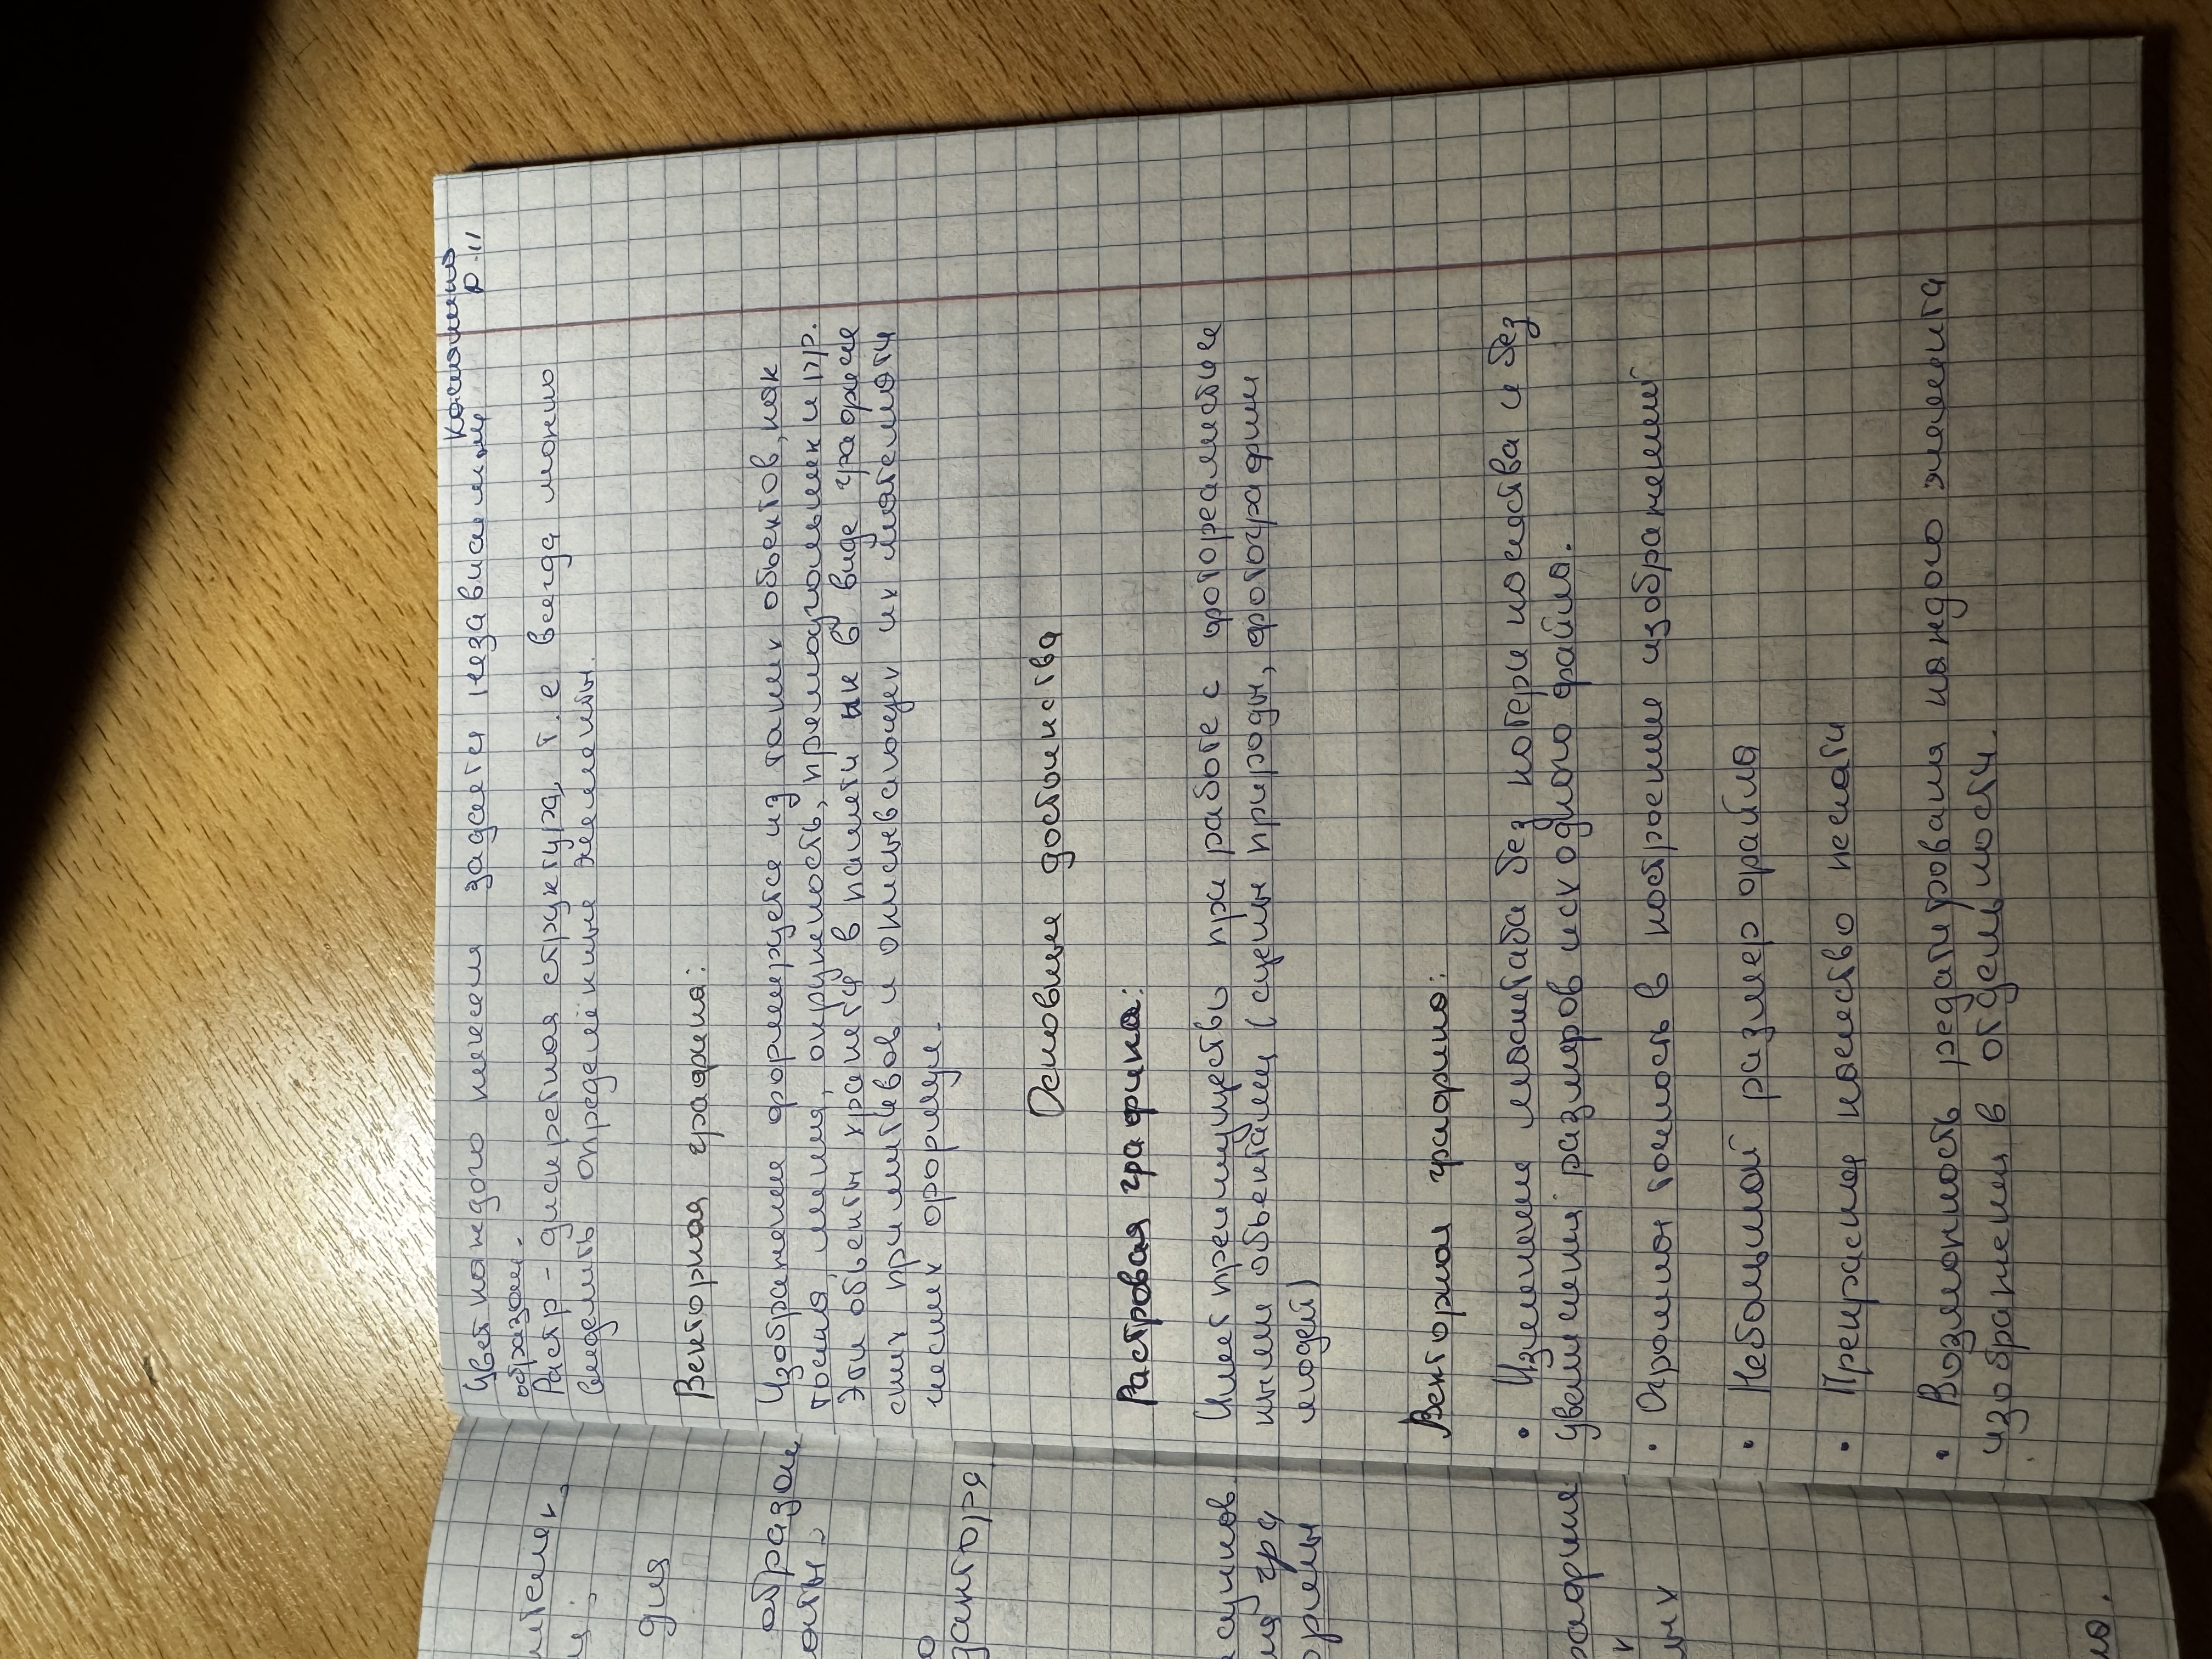 Цвет каждого пикселя задается независимым
образом.
Растр - дискретная структура, т.е всегда можно
выделить определённые элементы.
Векторная графика:
Изображение формируется из таких объектов, как
точка, линия, окружность, прямоугольник и пр.
Эти объекты хранятся в памяти ик в виде графиче
ских примитивов и описывающих их математи
ческих формул.
Основные достоинства
Растровая графика:
Имеет преимущества при работе с фотореалистич
ными объектами (сцены природы, фотографии
людей)
Векторная графика:
• Изменение масштаба без потери качества и без
увеличения размеров исходного файла.
• Огромная точность в построении изображений
• Небольшой размер файла
• Прекрасное качество печати
• Возможность редатирования каждого элемента
изображения в отдельности.
для
образом